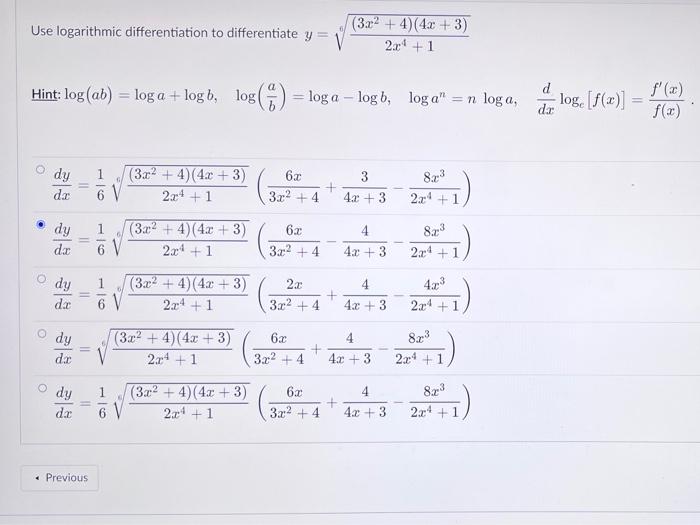 Use logarithmic differentiation to differentiate y = \sqrt[6]{\frac{(3x^2 + 4)(4x + 3)}{2x^4 + 1}}
Hint: log(ab) = log a + log b, log(\frac{a}{b}) = log a − log b, log a^n = n log a, \frac{d}{dx} log_e [f(x)] = \frac{f'(x)}{f(x)}.
\frac{dy}{dx} = \frac{1}{6} \sqrt[6]{\frac{(3x^2 + 4)(4x + 3)}{2x^4 + 1}} (\frac{6x}{3x^2 + 4} + \frac{3}{4x + 3} − \frac{8x^3}{2x^4 + 1})
\frac{dy}{dx} = \frac{1}{6} \sqrt[6]{\frac{(3x^2 + 4)(4x + 3)}{2x^4 + 1}} (\frac{6x}{3x^2 + 4} − \frac{4}{4x + 3} − \frac{8x^3}{2x^4 + 1})
\frac{dy}{dx} = \frac{1}{6} \sqrt[6]{\frac{(3x^2 + 4)(4x + 3)}{2x^4 + 1}} (\frac{2x}{3x^2 + 4} + \frac{4}{4x + 3} − \frac{4x^3}{2x^4 + 1})
\frac{dy}{dx} = \sqrt[6]{\frac{(3x^2 + 4)(4x + 3)}{2x^4 + 1}} (\frac{6x}{3x^2 + 4} + \frac{4}{4x + 3} − \frac{8x^3}{2x^4 + 1})
\frac{dy}{dx} = \frac{1}{6} \sqrt[6]{\frac{(3x^2 + 4)(4x + 3)}{2x^4 + 1}} (\frac{6x}{3x^2 + 4} + \frac{4}{4x + 3} − \frac{8x^3}{2x^4 + 1})
Previous